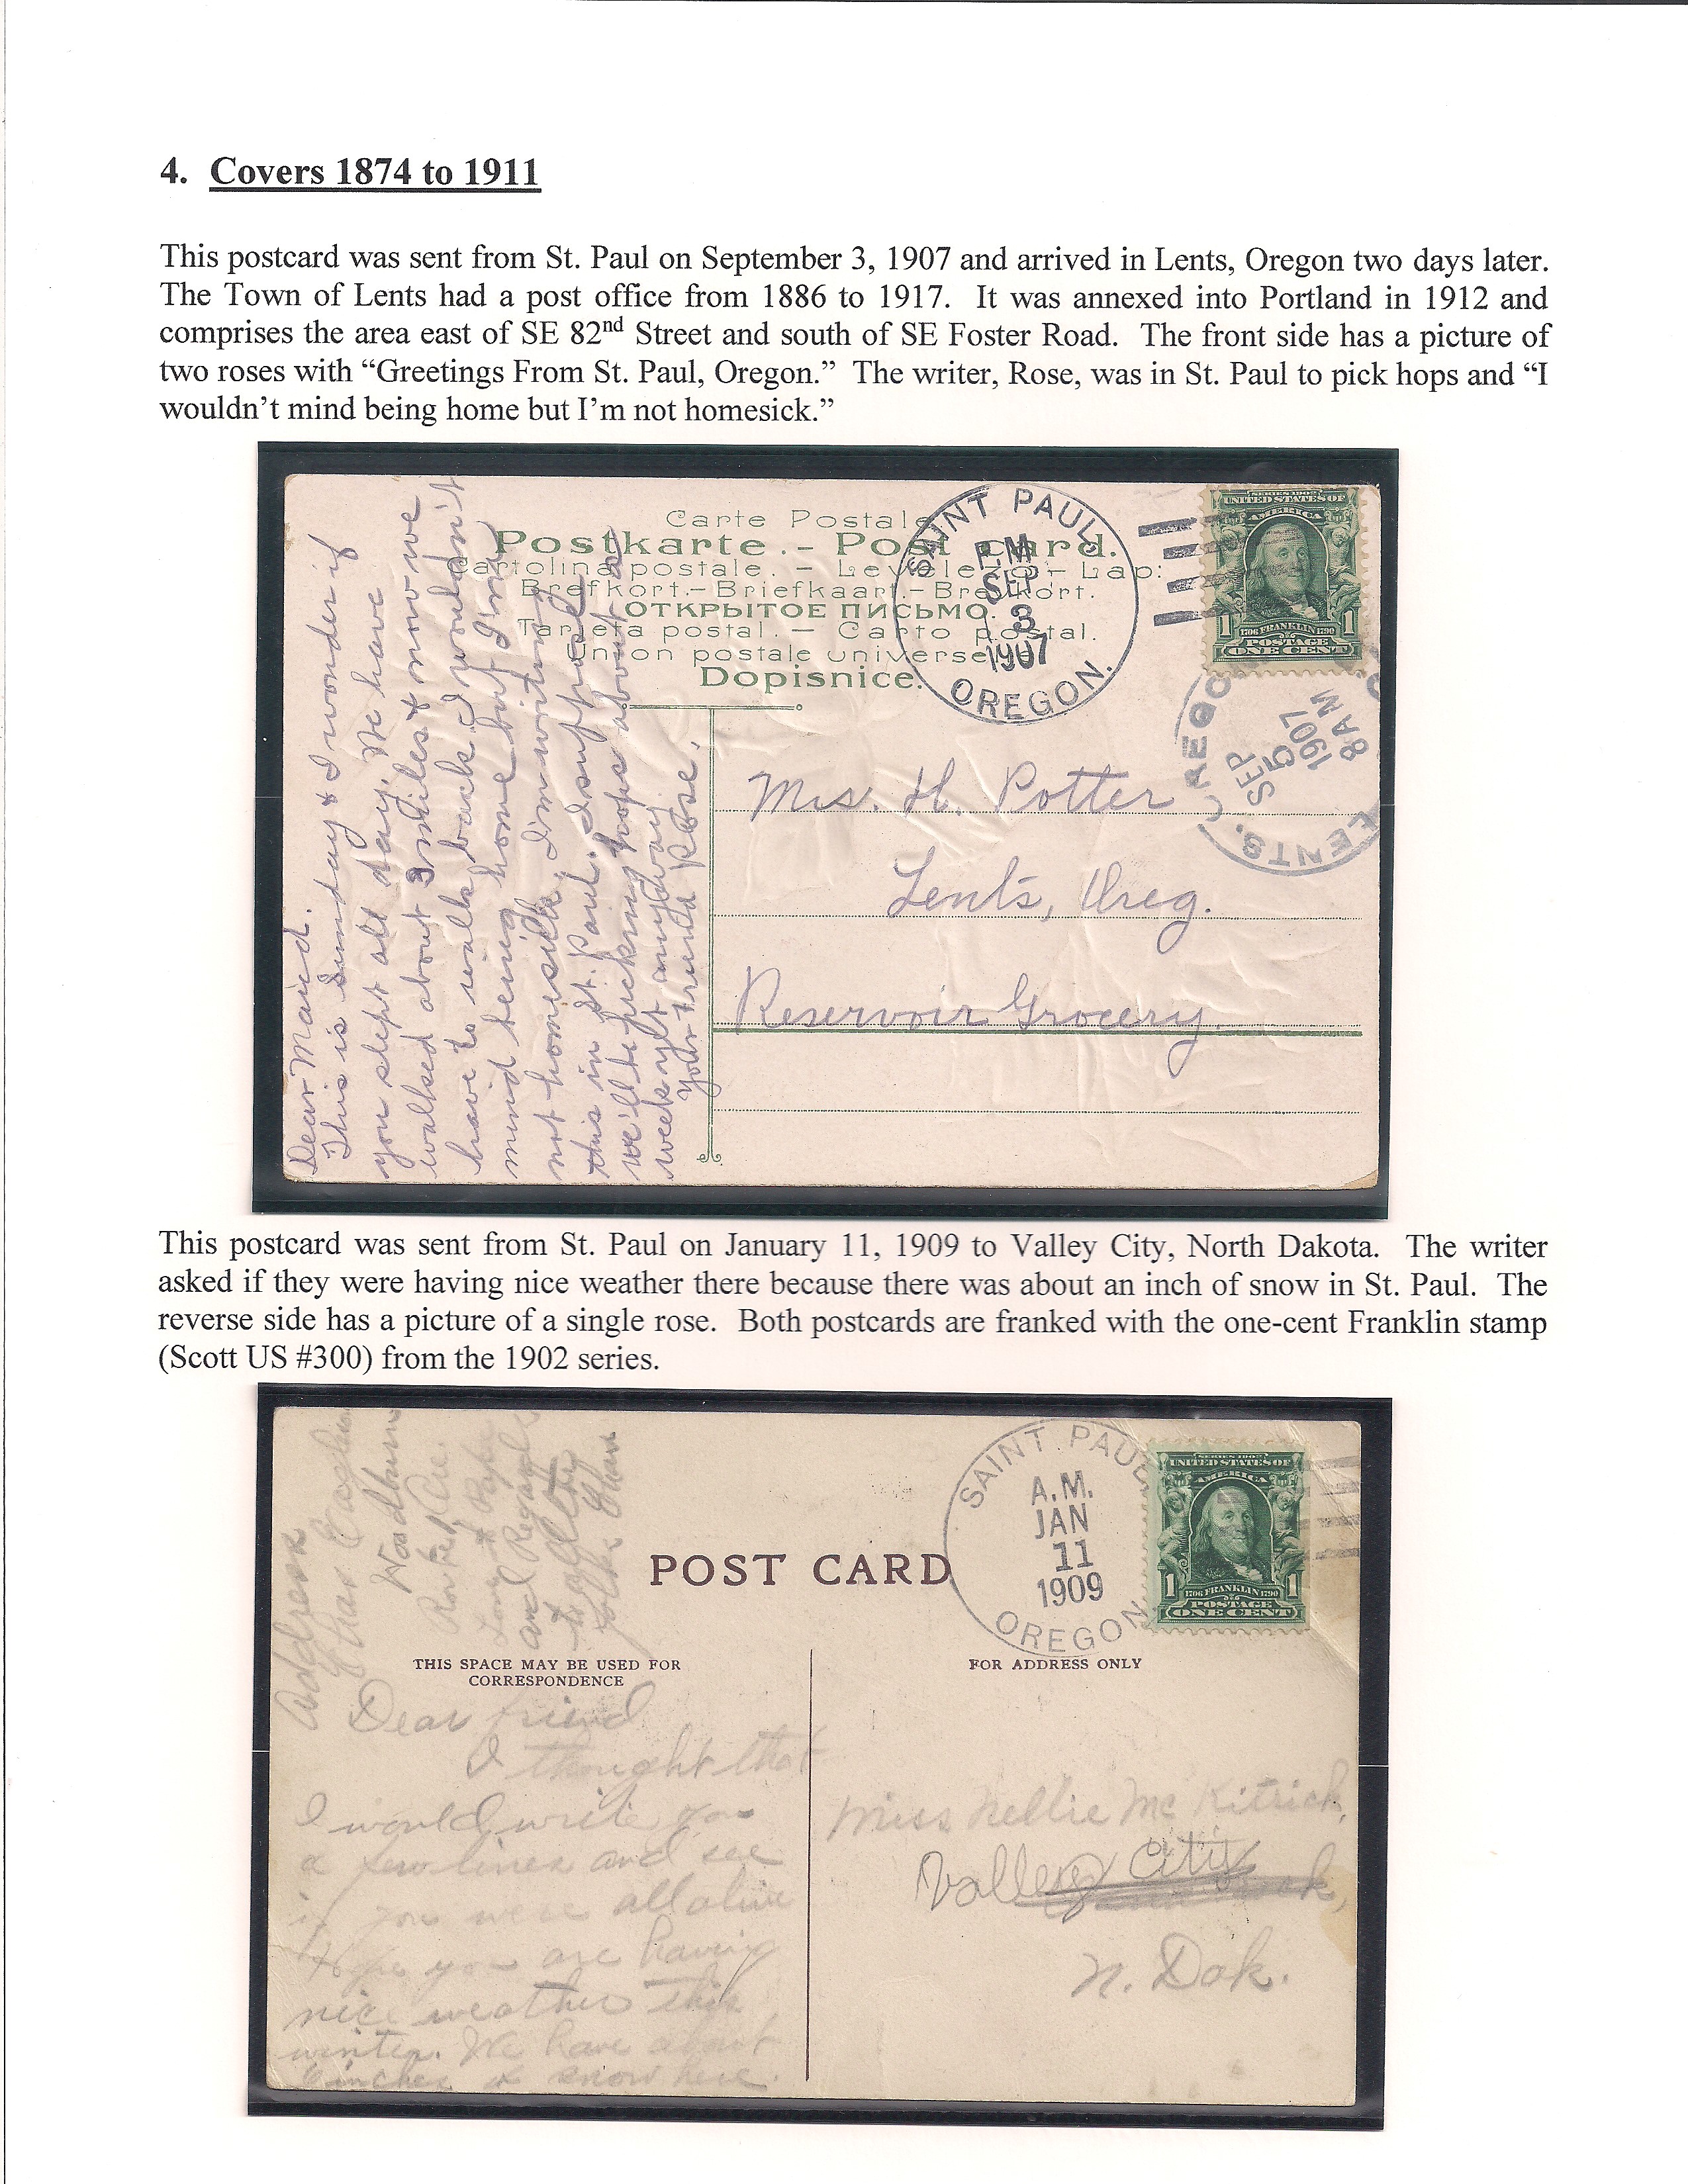 4. Covers 1874 to 1911
This postcard was sent from St. Paul on September 3, 1907 and arrived in Lents, Oregon two days later.
The Town of Lents had a post office from 1886 to 1917. It was annexed into Portland in 1912 and
comprises the area east of SE 82nd Street and south of SE Foster Road. The front side has a picture of
two roses with “Greetings From St. Paul, Oregon.” The writer, Rose, was in St. Paul to pick hops and “I
wouldn’t mind being home but I’m not homesick.”
Carte Postale
Postkarte. - Post card.
Cartolina postale. - Levelező - Lap:
Brefkort.- Briefkaart.- Brevkort.
ОТКРЫТОЕ ПИСЬМО.
Tarjeta postal. — Carto postal.
Union postale universelle
Dopisnice.
SAINT PAUL,
P.M
SEP
3
1907
OREGON.
SERIES 1902
UNITED STATES OF
AMERICA
1706 FRANKLIN 1790
1 POSTAGE 1
ONE CENT
LENTS. OREGO
SEP
5
1907
8 AM
Dear Maud.
This is Sunday & I wonder if
you slept all day. We have
walked about 3 miles & now we
have to walk back. I wouldn't
mind being home but I'm
not homesick. I'm writing
this in St. Paul. I suppose
we'll be picking hops about a
week yet anyway.
Your friend Rose.
Mrs. H. Potter
Lents, Oreg.
Reservoir Grocery.
This postcard was sent from St. Paul on January 11, 1909 to Valley City, North Dakota. The writer
asked if they were having nice weather there because there was about an inch of snow in St. Paul. The
reverse side has a picture of a single rose. Both postcards are franked with the one-cent Franklin stamp
(Scott US #300) from the 1902 series.
Address
Woodburn
and Regards
to all the
folks
POST CARD
SAINT PAUL
A.M.
JAN
11
1909
OREGON
SERIES 1902
UNITED STATES OF
AMERICA
1706 FRANKLIN 1790
1 POSTAGE 1
ONE CENT
THIS SPACE MAY BE USED FOR
CORRESPONDENCE
FOR ADDRESS ONLY
Dear friend
I thought that
I would write you
a few lines and see
if you were all alive
Hope you are having
nice weather this
winter. We have about
inches of snow here.
Miss Nellie McKitrick,
Valley City
N. Dak.